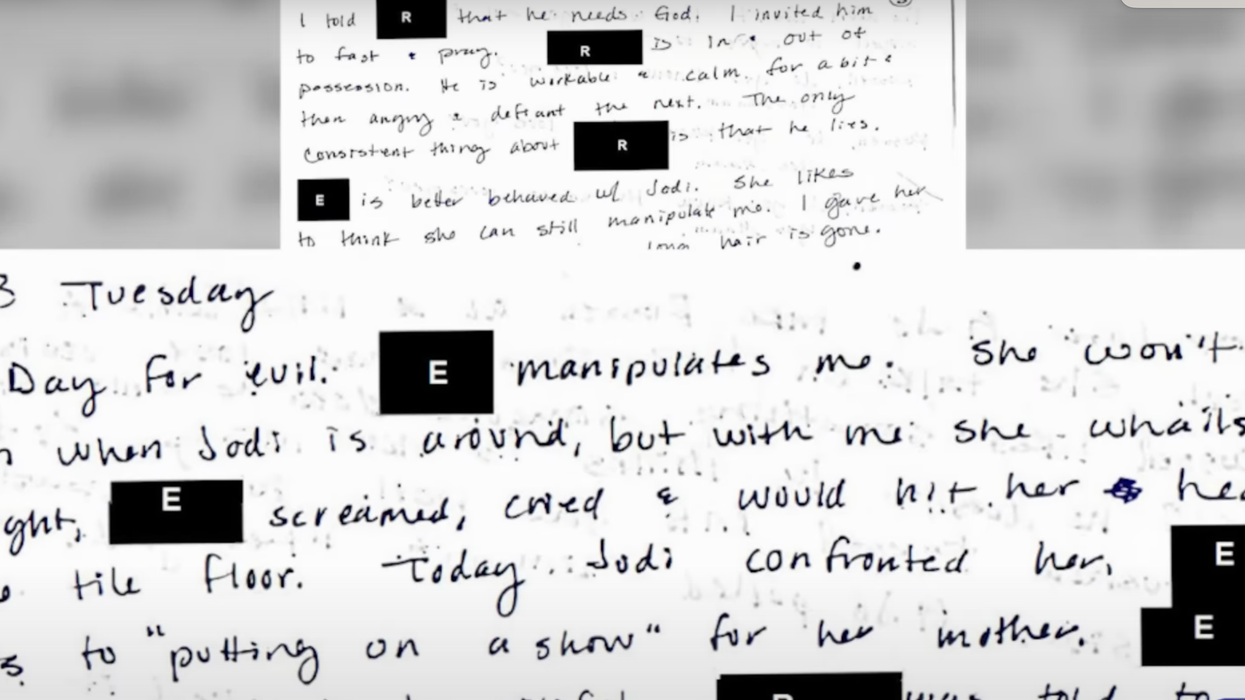 I told R that he needs God. I invited him
to fast & pray. R is in & out of
possession. He is workable & calm for a bit &
then angry & defiant the next. The only
consistent thing about R is that he lies.
E is better behaved w/ Jodi. She likes
to think she can still manipulate me. I gave her
long hair is gone.
3 Tuesday
Day for evil. E manipulates me. She won't
when Jodi is around, but with me she whails
ght, E screamed, cried & would hit her hea
tile floor. Today Jodi confronted her. E
s to "putting on a show" for her mother. E
R was told to